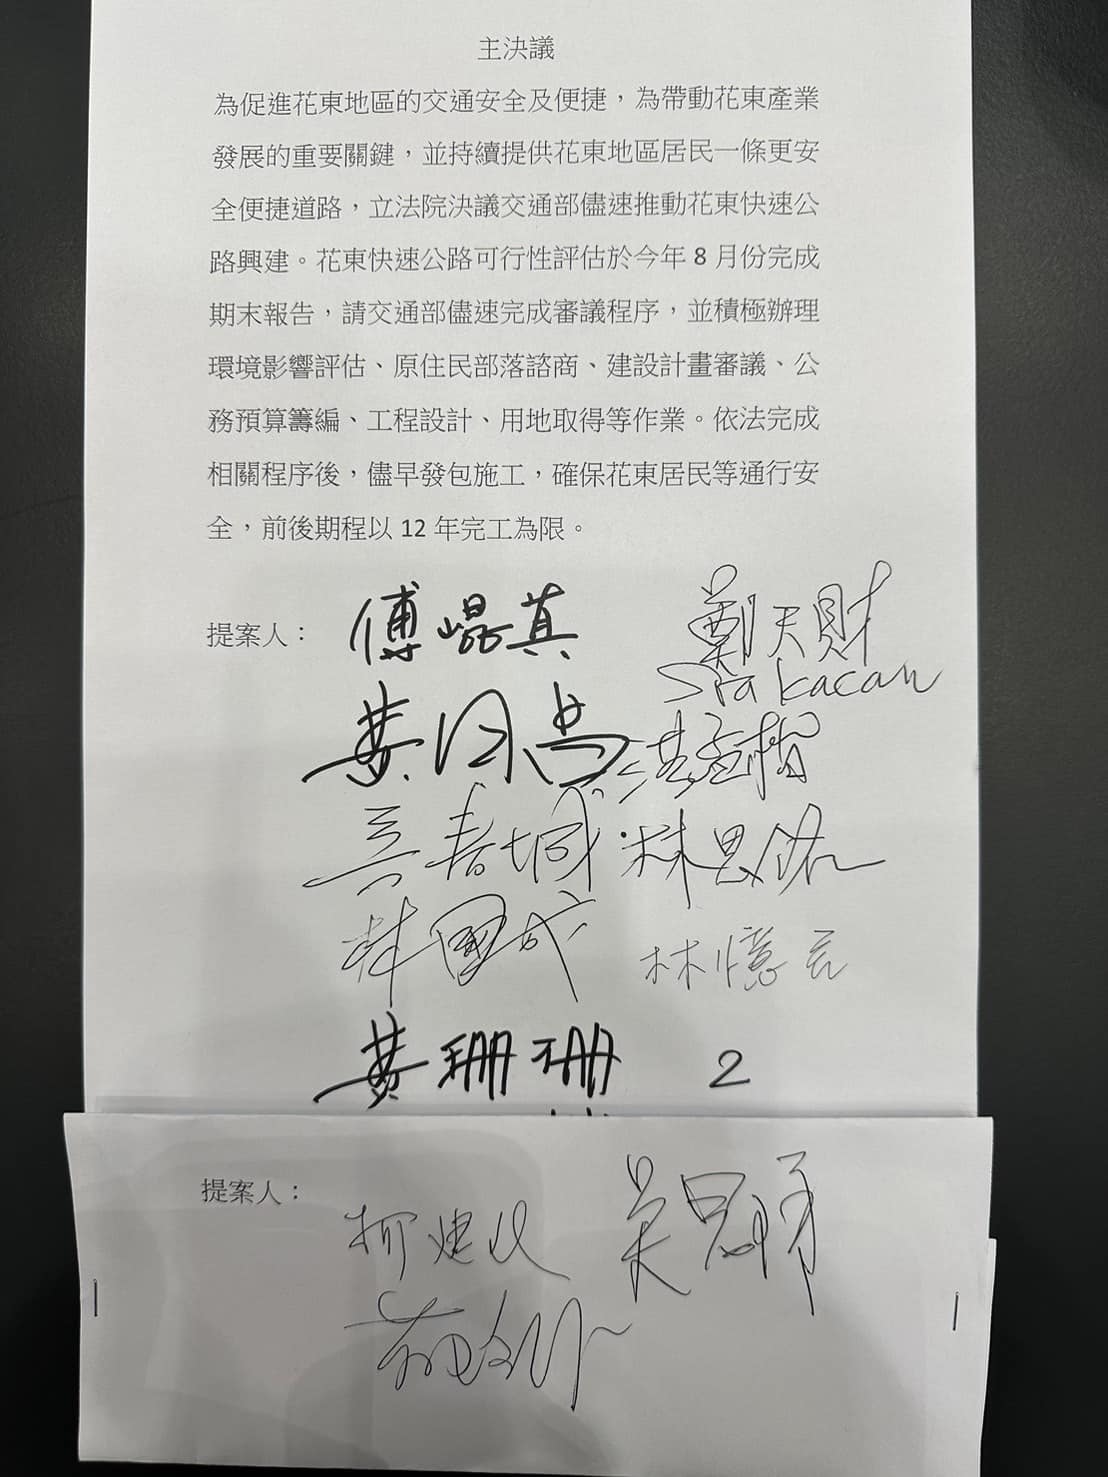 主決議
為促進花東地區的交通安全及便捷，為帶動花東產業
發展的重要關鍵，並持續提供花東地區居民一條更安
全便捷道路，立法院決議交通部儘速推動花東快速公
路興建。花東快速公路可行性評估於今年 8 月份完成
期末報告，請交通部儘速完成審議程序，並積極辦理
環境影響評估、原住民部落諮商、建設計畫審議、公
務預算籌編、工程設計、用地取得等作業。依法完成
相關程序後，儘早發包施工，確保花東居民等通行安
全，前後期程以 12 年完工為限。
提案人：
傅崐萁 鄭天財
Sra Kacaw
洪孟楷
吳春城 林思銘
林國成 林憶君
黃珊珊 2
提案人：